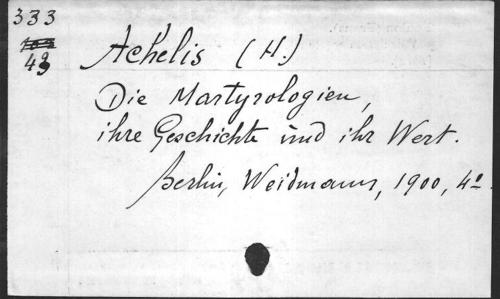 333
49
Achelis (H.)
Die Martyrologien,
ihre Geschichte und ihr Wert.
Berlin, Weidmann, 1900, 4º.